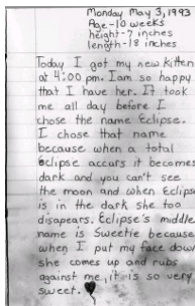 Monday May 3, 1993
Age-10 weeks
height-7 inches
length-18 inches
Today I got my new kitten
at 4:00 pm. I am so happy
that I have her. It took
me all day before I
chose the name Eclipse.
I chose that name
because when a total
eclipse accurs it becomes
dark and you can't see
the moon and when Eclipse
is in the dark she too
disapears. Eclipse's middle
name is Sweetie because
when I put my face down
she comes up and rubs
against me, it is so very
sweet.